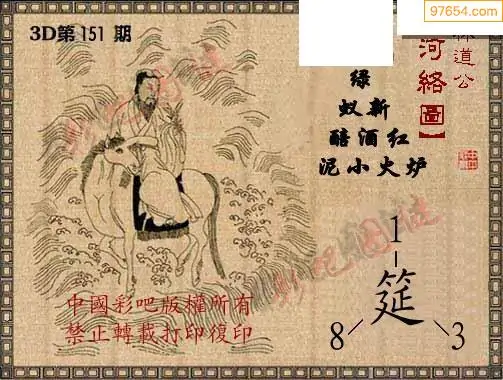 97654.com
3D第 151 期
林道公
河絡圖】
绿
蚁新
醅酒红
泥小火炉
彩吧图谜
彩吧图谜
1
筵
8
3
中國彩吧版權所有
禁止轉載打印復印